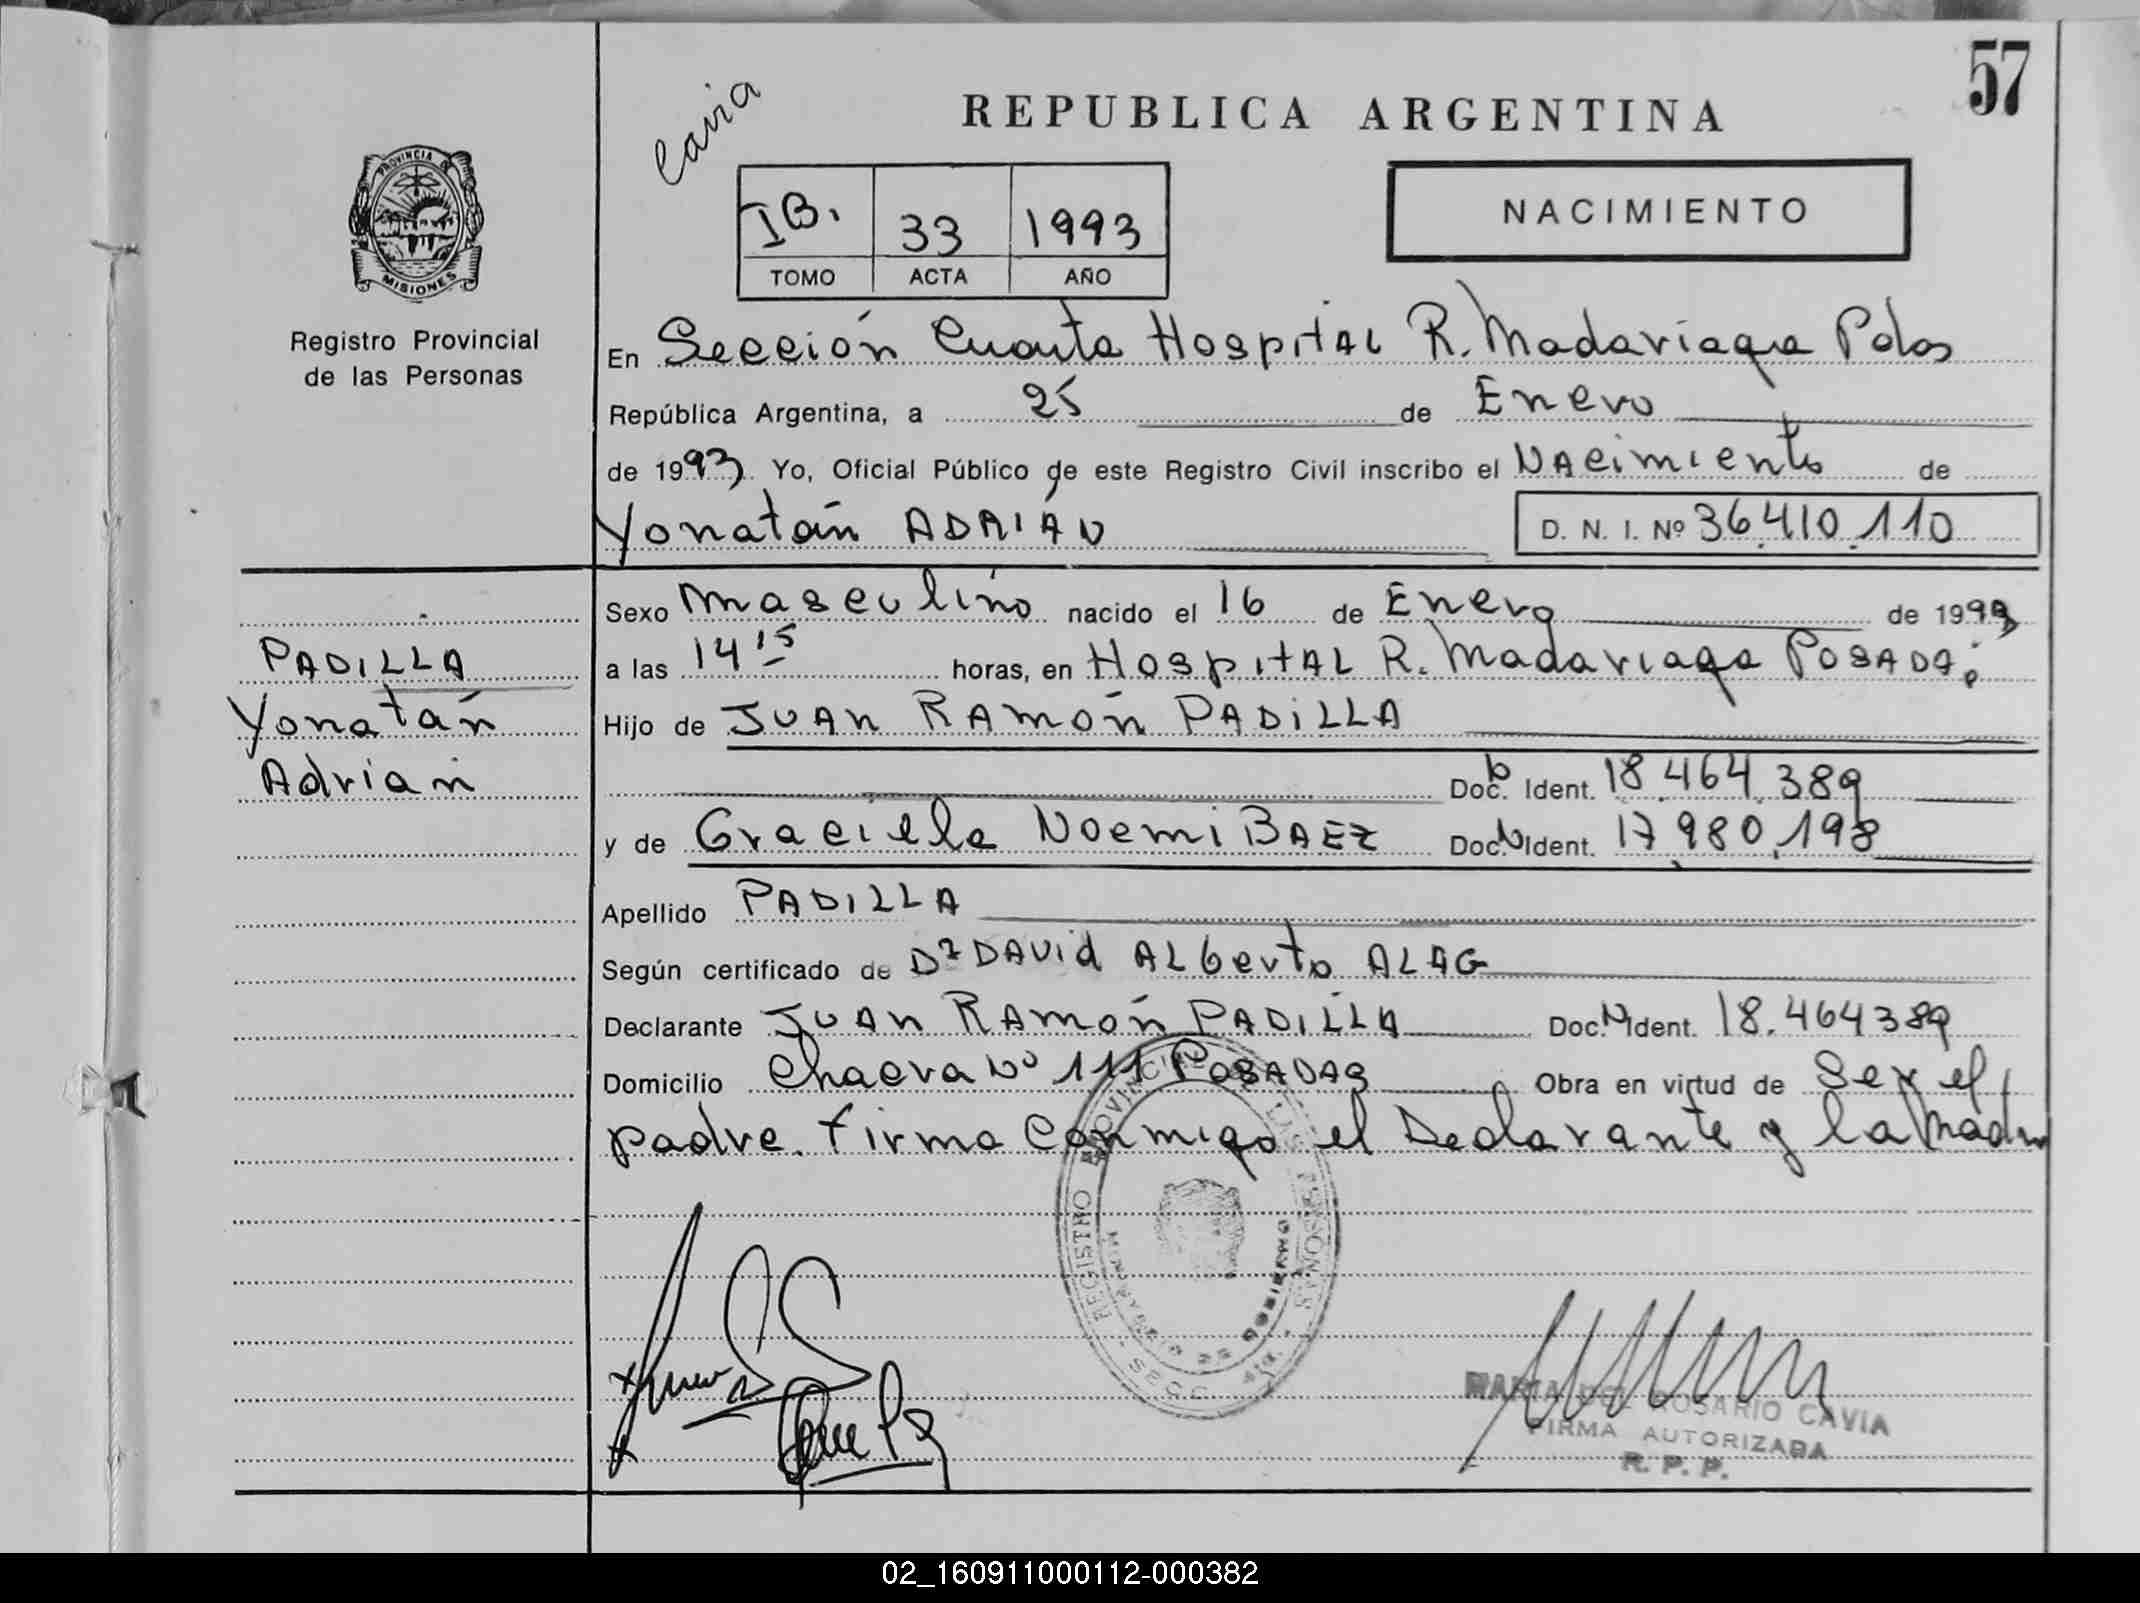 57
Cavia
REPUBLICA ARGENTINA
PROVINCIA DE MISIONES
IB. 33 1993
TOMO ACTA AÑO
NACIMIENTO
Registro Provincial
de las Personas
En Sección Cuarta Hospital R. Madariaga Pdas
República Argentina, a 25 de Enero
de 1993 Yo, Oficial Público de este Registro Civil inscribo el Nacimiento de
Yonatán ADRIAN D. N. I. Nº 36.410.110
Sexo Masculino nacido el 16 de Enero de 1993
PADILLA
a las 14 15 horas, en Hospital R. Madariaga POSADAS
Yonatán
Hijo de JUAN RAMÓN PADILLA
Adrian
Doc. Ident. 18.464.389
y de Graciela Noemi BAEZ Doc. N Ident. 17.980.198
Apellido PADILLA
Según certificado de Dr DAVID ALberto ALAG
Declarante JUAN RAMÓN PADILLA Doc. N Ident. 18.464389
Domicilio Chacra Nº 111 POSADAS Obra en virtud de Ser el
padre. Firma Conmigo el Declarante y la Madre
REGISTRO PROVINCIAL DE LAS PERSONAS
MINISTERIO DE GOBIERNO
SECC.
MARIA DEL ROSARIO CAVIA
FIRMA AUTORIZADA
R. P. P.
02_160911000112-000382